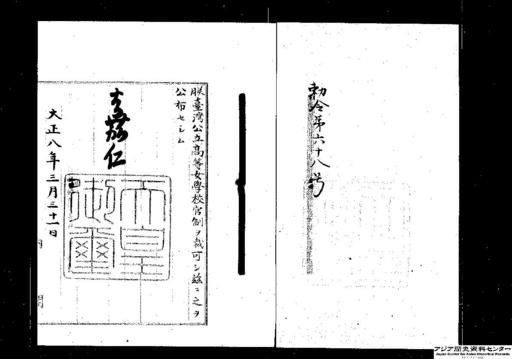 勅令第六十八号
朕臺灣公立高等女學校官制ヲ裁可シ茲ニ之ヲ
公布セシム
嘉仁
天皇御璽
大正八年三月三十一日
内閣
アジア歴史資料センター
Japan Center for Asian Historical Records